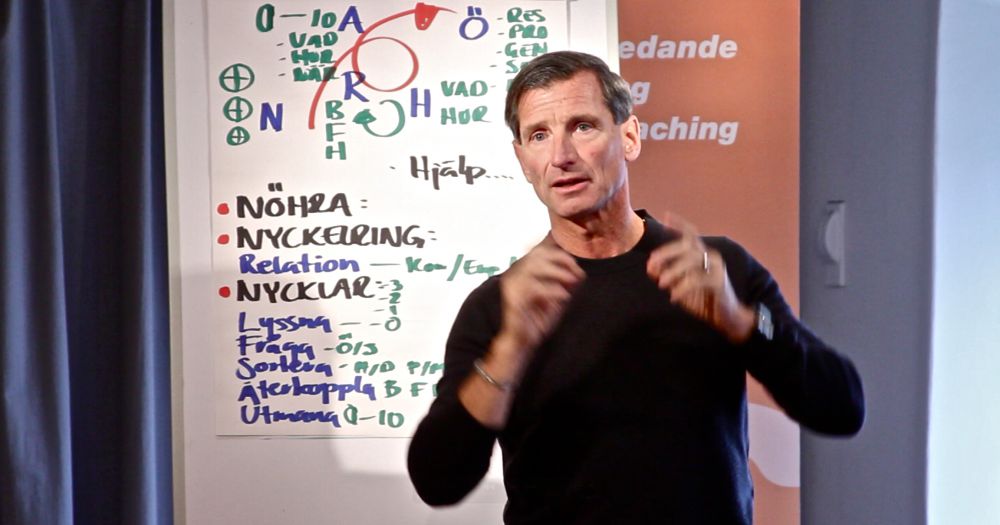 0-10 A Ö - RES
- VAD - PRO
- HUR - GEN
- NÄR
R H VAD-
N B HUR
F
H
· Hjälp....
• NÖHRA:
• NYCKELRING:
Relation — Kom/
• NYCKLAR:-3
-2
-1
Lyssna - -0
Fråga - Ö/S
Sortera - H/D P/H
Återkoppla B F
Utmana 0-10
edande
g
ching